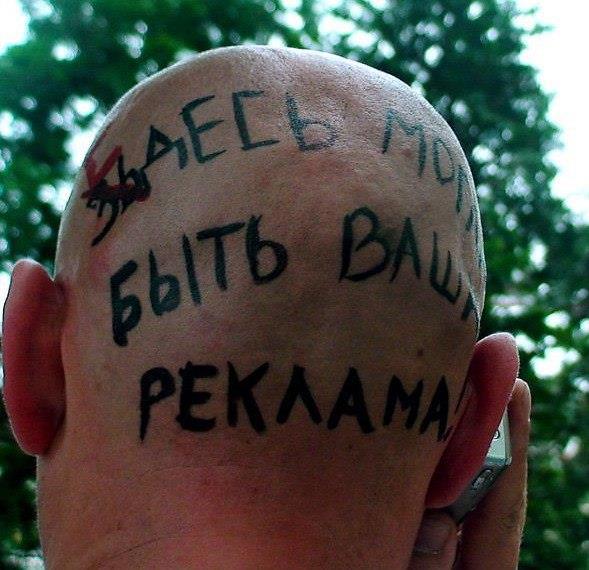 ЗДЕСЬ МОГЛ
БЫТЬ ВАША
РЕКЛАМА!